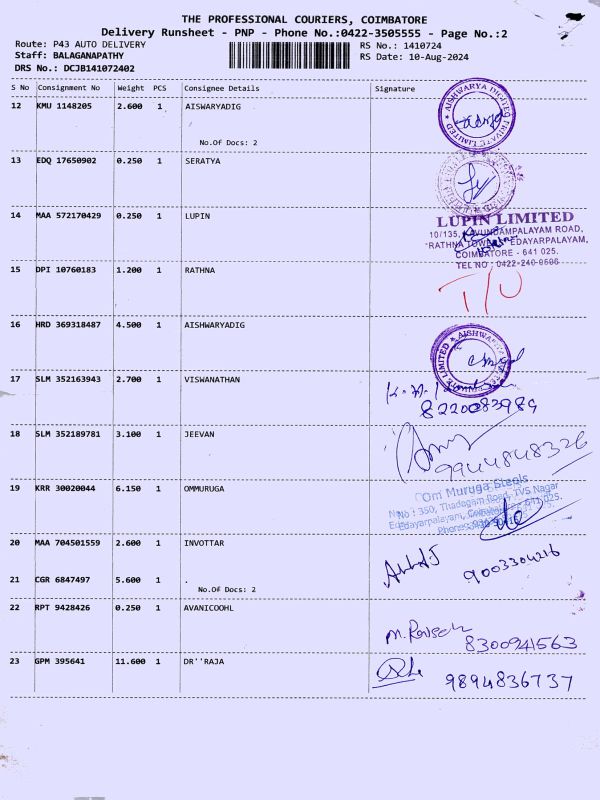 THE PROFESSIONAL COURIERS, COIMBATORE
Delivery Runsheet - PNP - Phone No.:0422-3505555 - Page No.:2
Route: P43 AUTO DELIVERY RS No.: 1410724
Staff: BALAGANAPATHY RS Date: 10-Aug-2024
DRS No.: DCJB141072402
S No Consignment No Weight PCS Consignee Details Signature
12 KMU 1148205 2.600 1 AISWARYADIG
No.Of Docs: 2
13 EDQ 17650902 0.250 1 SERATYA
14 MAA 572170429 0.250 1 LUPIN
LUPIN LIMITED
10/135, KAVUNDAMPALAYAM ROAD,
"RATHNA TOWERS" EDAYARPALAYAM,
COIMBATORE - 641 025.
TEL NO : 0422-240 0606
15 DPI 10760183 1.200 1 RATHNA
T/U
16 HRD 369318487 4.500 1 AISHWARYADIG
17 SLM 352163943 2.700 1 VISWANATHAN
8220083989
18 SLM 352189781 3.100 1 JEEVAN
9944848326
19 KRR 30020044 6.150 1 OMMURUGA
Om Muruga Steels
No : 350, Thadagam Road, TVS Nagar
Edayarpalayam, 641 025.
20 MAA 704501559 2.600 1 INVOTTAR
9003304216
21 CGR 6847497 5.600 1 .
No.Of Docs: 2
22 RPT 9428426 0.250 1 AVANICOOHL
8300941563
23 GPM 395641 11.600 1 DR''RAJA
9894836737